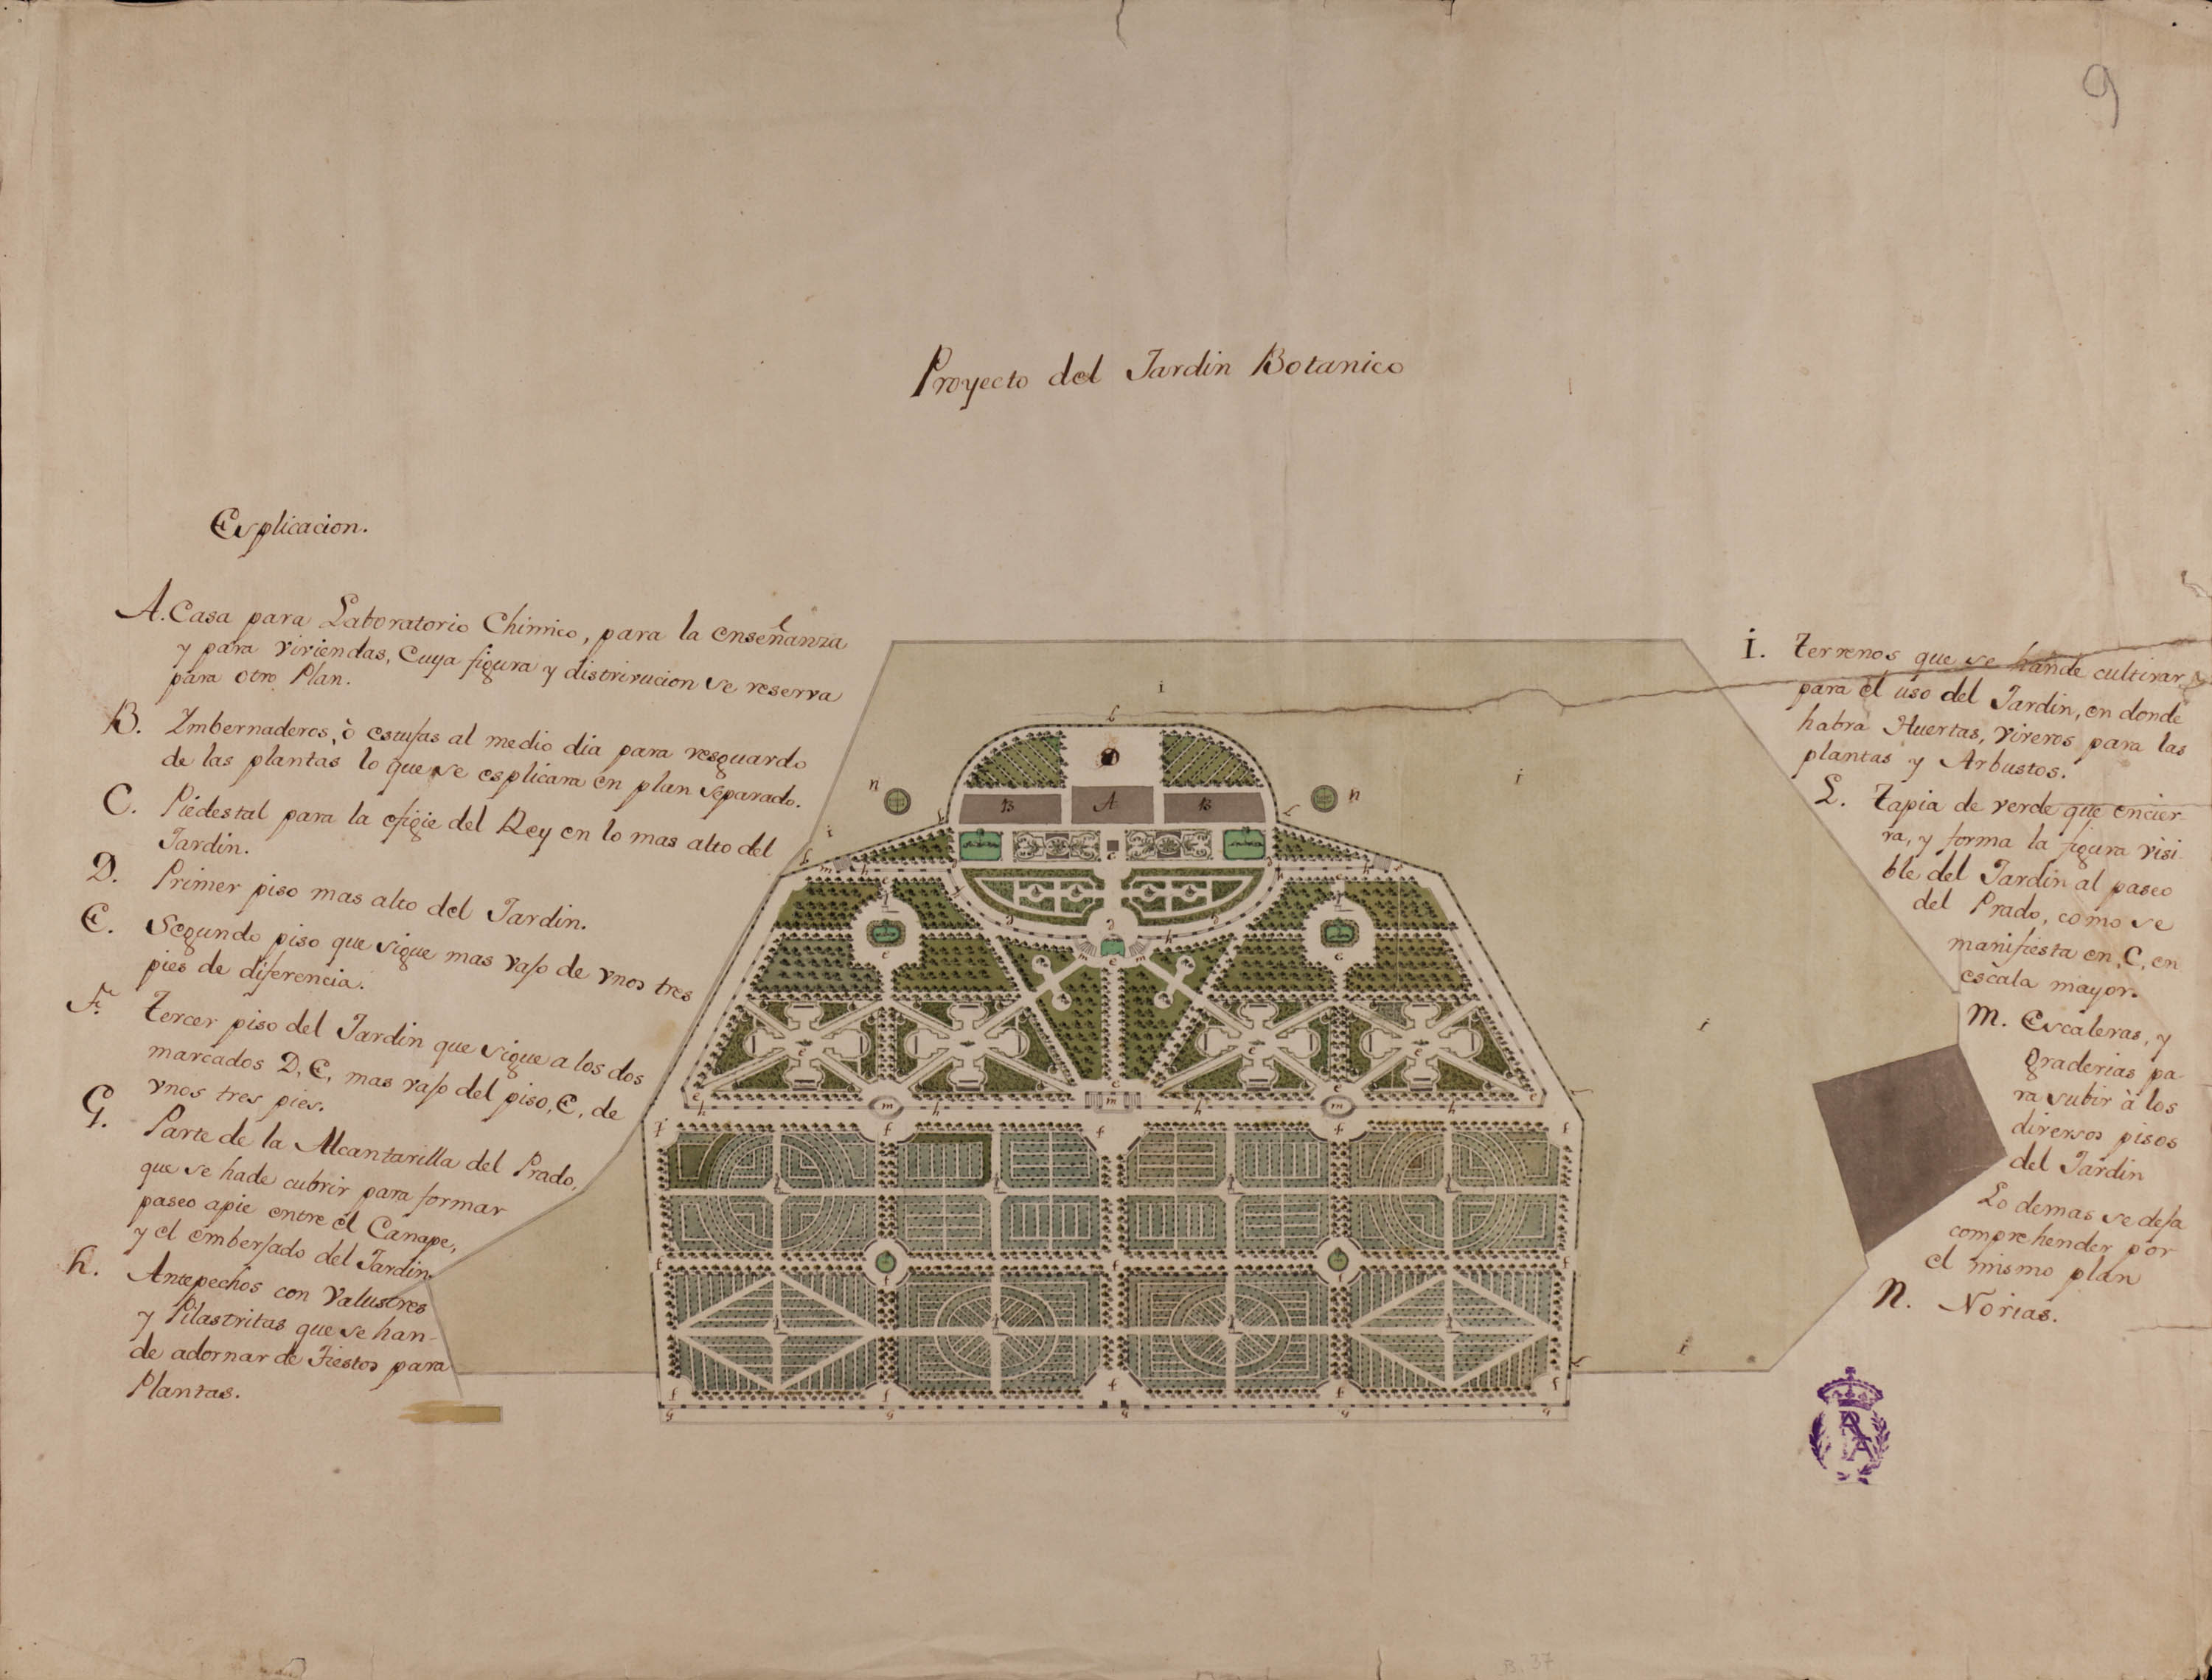 9
Proyecto del Jardin Botanico
Esplicacion.
A. Casa para Laboratorio Chimico, para la enseñanza
y para viviendas, Cuya figura y distrivucion se reserva
para otro Plan.
B. Imbernaderos, ò estufas al medio dia para resguardo
de las plantas lo que se esplicara en plan separado.
C. Piedestal para la efigie del Rey en lo mas alto del
Jardin.
D. Primer piso mas alto del Jardin.
E. Segundo piso que sigue mas vajo de vnos tres
pies de diferencia.
F. Tercer piso del Jardin que sigue a los dos
marcados D, E, mas vajo del piso, E, de
vnos tres pies.
G. Parte de la Alcantarilla del Prado,
que se hade cubrir para formar
paseo apie entre el Canape,
y el emberjado del Jardin.
h. Antepechos con Valustres
y Pilastritas que se han
de adornar de Tiestos para
Plantas.
i. Terrenos que se hande cultivar
para el uso del Jardin, en donde
habra Huertas, viveros para las
plantas y Arbustos.
L. Tapia de verde que encier-
ra, y forma la figura visi-
ble del Jardin al paseo
del Prado, como se
manifiesta en, C, en
escala mayor.
M. Escaleras, y
graderias pa-
ra subir à los
diversos pisos
del Jardin
Lo demas se deja
comprehender por
el mismo plan
N. Norias.
i
L
D
n
B
A
B
n
i
i
i
C
m
h
h
m
h
h
f
f
f
f
f
g
g
g
g
i
RA
B. 37